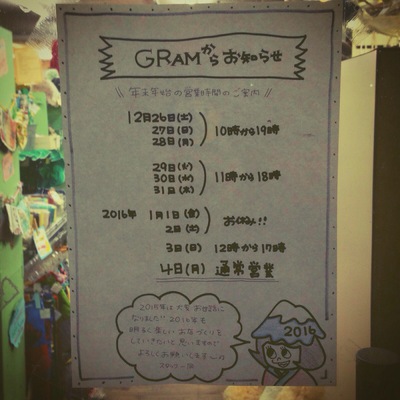 GRAMからお知らせ
年末年始の営業時間のご案内
12月26日(土)
27日(日) 10時から19時
28日(月)
29日(火)
30日(水) 11時から18時
31日(木)
2016年 1月1日(金) おやすみ!!
2日(土)
3日(日) 12時から17時
4日(月) 通常営業
2015年は大変お世話に
なりました!! 2016年も
明るく楽しいお店づくりを
していきたいと思いますので
よろしくお願いします
スタッフ一同
2016